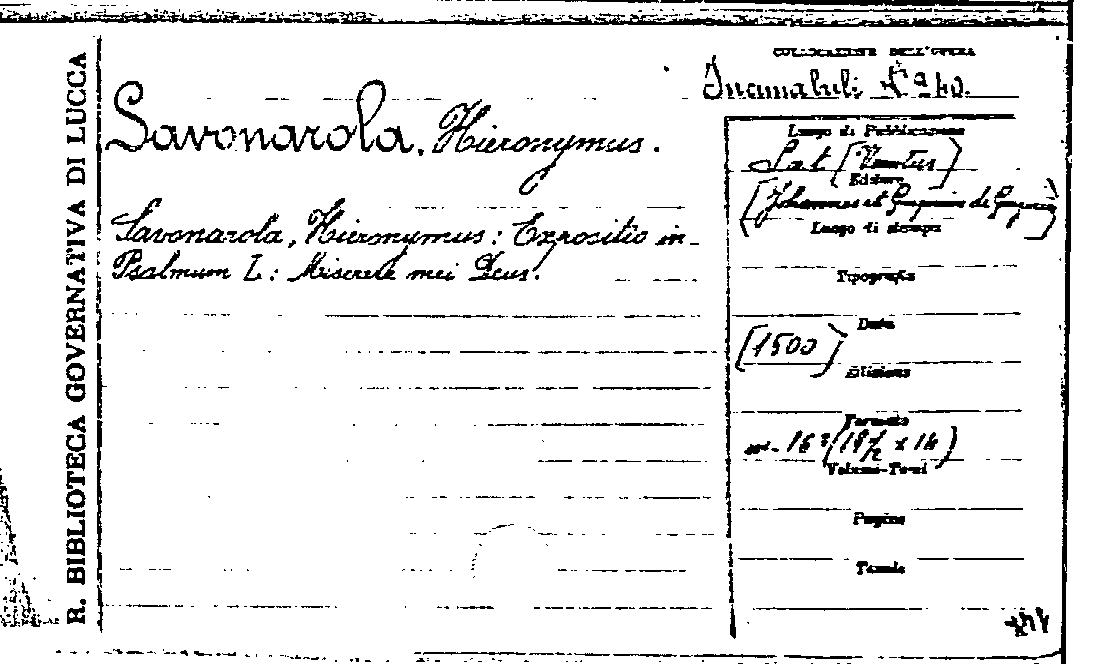 R. BIBLIOTECA GOVERNATIVA DI LUCCA
COLLOCAZIONE DELL'OPERA
Incunabuli N° 40.
Savonarola, Hieronymus.
Savonarola, Hieronymus: Expositio in
Psalmum L: Miserere mei Deus.
Luogo di Pubblicazione
Editore
[Johannes et
Luogo di stampa
Tipografia
Data
[1500]
Edizione
Formato
in- 16° (19 1/2 x 14)
Volume-Tomi
Pagine
Tavole